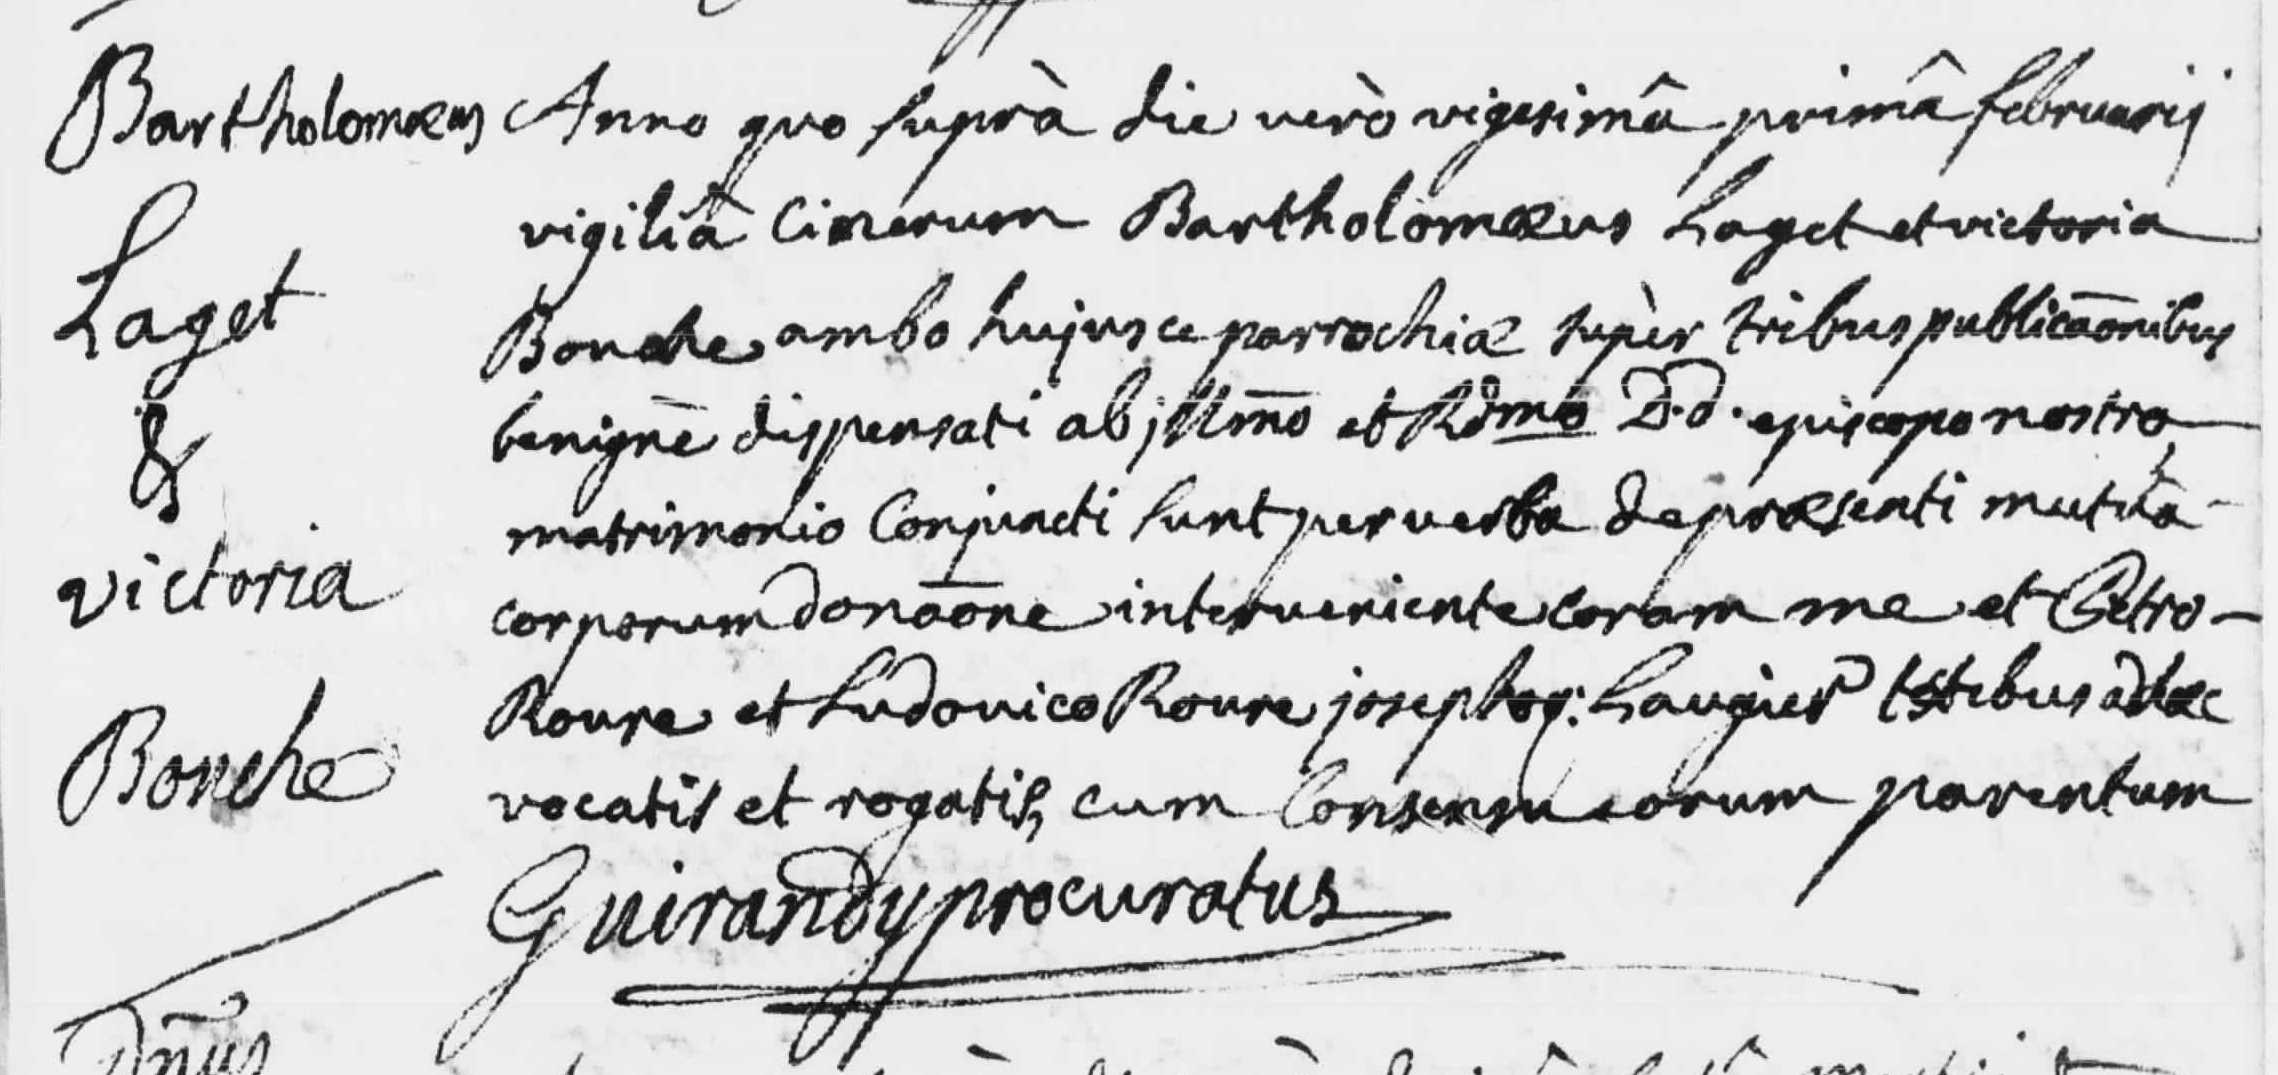 Bartholomæus
Laget
&
victoria
Bouche
Anno quo suprà die verò vigesimâ primâ februarij
vigiliâ Cinerum Bartholomæus Laget et victoria
Bouche ambo hujusce parrochiæ supèr tribus publicāonibus
benignè dispensati ab jllm̄o et Rdmo D.d. episcopo nostro
matrimonio Conjuncti sunt per verba de præsenti mutuâ
corporum donāone interveniente coram me et Petro
Roure et Ludovico Roure josephoq: Laugier testibus ad hæc
vocatis et rogatis, cum Consensu eorum parentum
Guirandy procuratus
Dn̄us